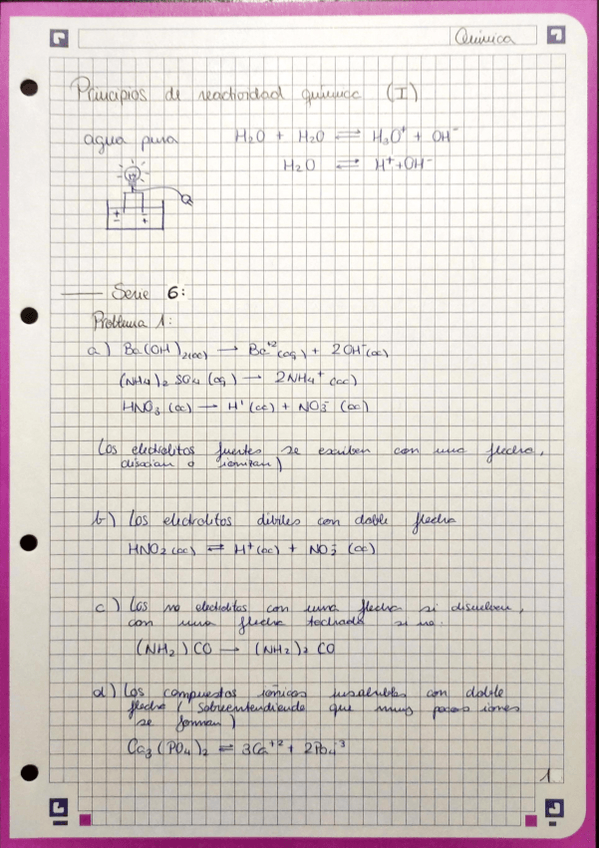 Química
Principios de reactividad química (I)
agua pura H₂O + H₂O ⇌ H₃O⁺ + OH⁻
H₂O ⇌ H⁺ + OH⁻
+ - + -
Serie 6:
Problema 1:
a) Ba(OH)₂(ac) → Ba⁺²(aq) + 2OH⁻(ac)
(NH₄)₂SO₄ (aq) → 2NH₄⁺ (ac)
HNO₃ (ac) → H⁺(ac) + NO₃⁻ (ac)
(Los electrolitos fuertes se escriben con una flecha,
disocian o ionizan)
b) Los electrolitos débiles con doble flecha
HNO₂(ac) ⇌ H⁺(ac) + NO₃⁻ (ac)
c) Los no electrolitos con una flecha si disuelven,
con una flecha techada si no.
(NH₂)CO → (NH₂)₂CO
d) Los compuestos iónicos insolubles con doble
flecha (sobreentendiendo que muy pocos iones
se forman)
Ca₃(PO₄)₂ ⇌ 3Ca⁺² + 2PO₄⁻³
1